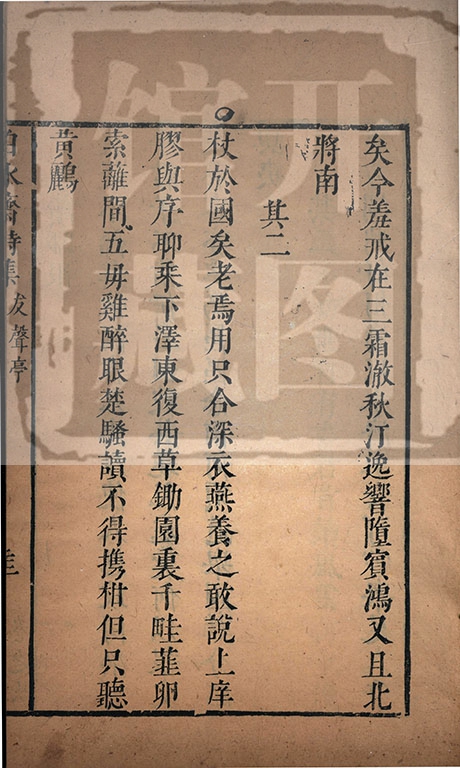 矣今羞戒在三霜澈秋汀逸響墮賓鴻又且北
將南
其二
杖於國矣老焉用只合深衣燕養之敢說上庠
膠與序聊乘下澤東復西草鋤園裏千畦韮卵
索籬間五毋雞醉眼楚騷讀不得携柑但只聽
黃鸝
詩集
聲亭
开图